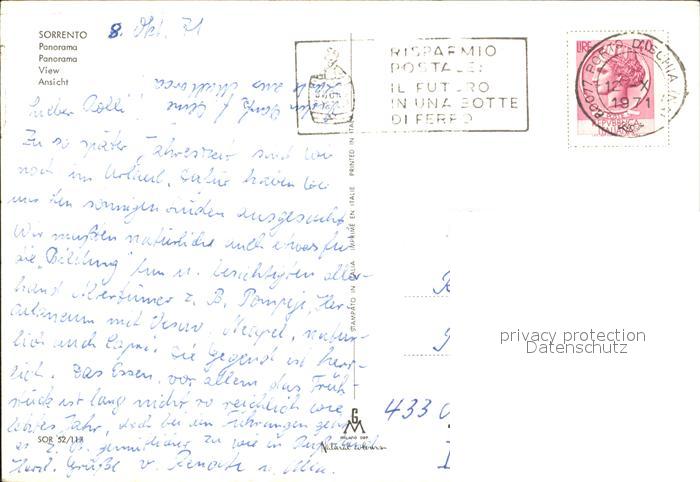 SORRENTO
Panorama
Panorama
View
Ansicht
8. Okt. 71
RISPARMIO
POSTALE:
IL FUTURO
IN UNA BOTTE
DI FERRO
LIRE
80077 PORTO D'ISCHIA (NA)
12 - X
1971
REPUBBLICA
aus Mallorca
Lieber Rolli!
Zu so später Jahreszeit sind wir
noch im Urlaub. Dafür haben wir
uns den sonnigen Süden ausgesucht.
Wir mußten natürlich auch etwas für
die "Bildung" tun u. besichtigten aller-
hand Altertümer z. B. Pompeji, Her-
culaneum mit Vesuv. Neapel, natür-
lich auch Capri. Die Gegend ist herr-
lich. Das Essen, vor allem das Früh-
stück ist lang nicht so reichlich wie
letztes Jahr, doch bei den Führungen
es z. B. gemütlicher zu wie in Rußland
Herzl. Grüße v. Renate u.
STAMPATO IN ITALIA IMPRIMÉ EN ITALIE PRINTED IN ITALY
433
privacy protection
Datenschutz
SOR 52/118
GM
MILANO
Natural colour